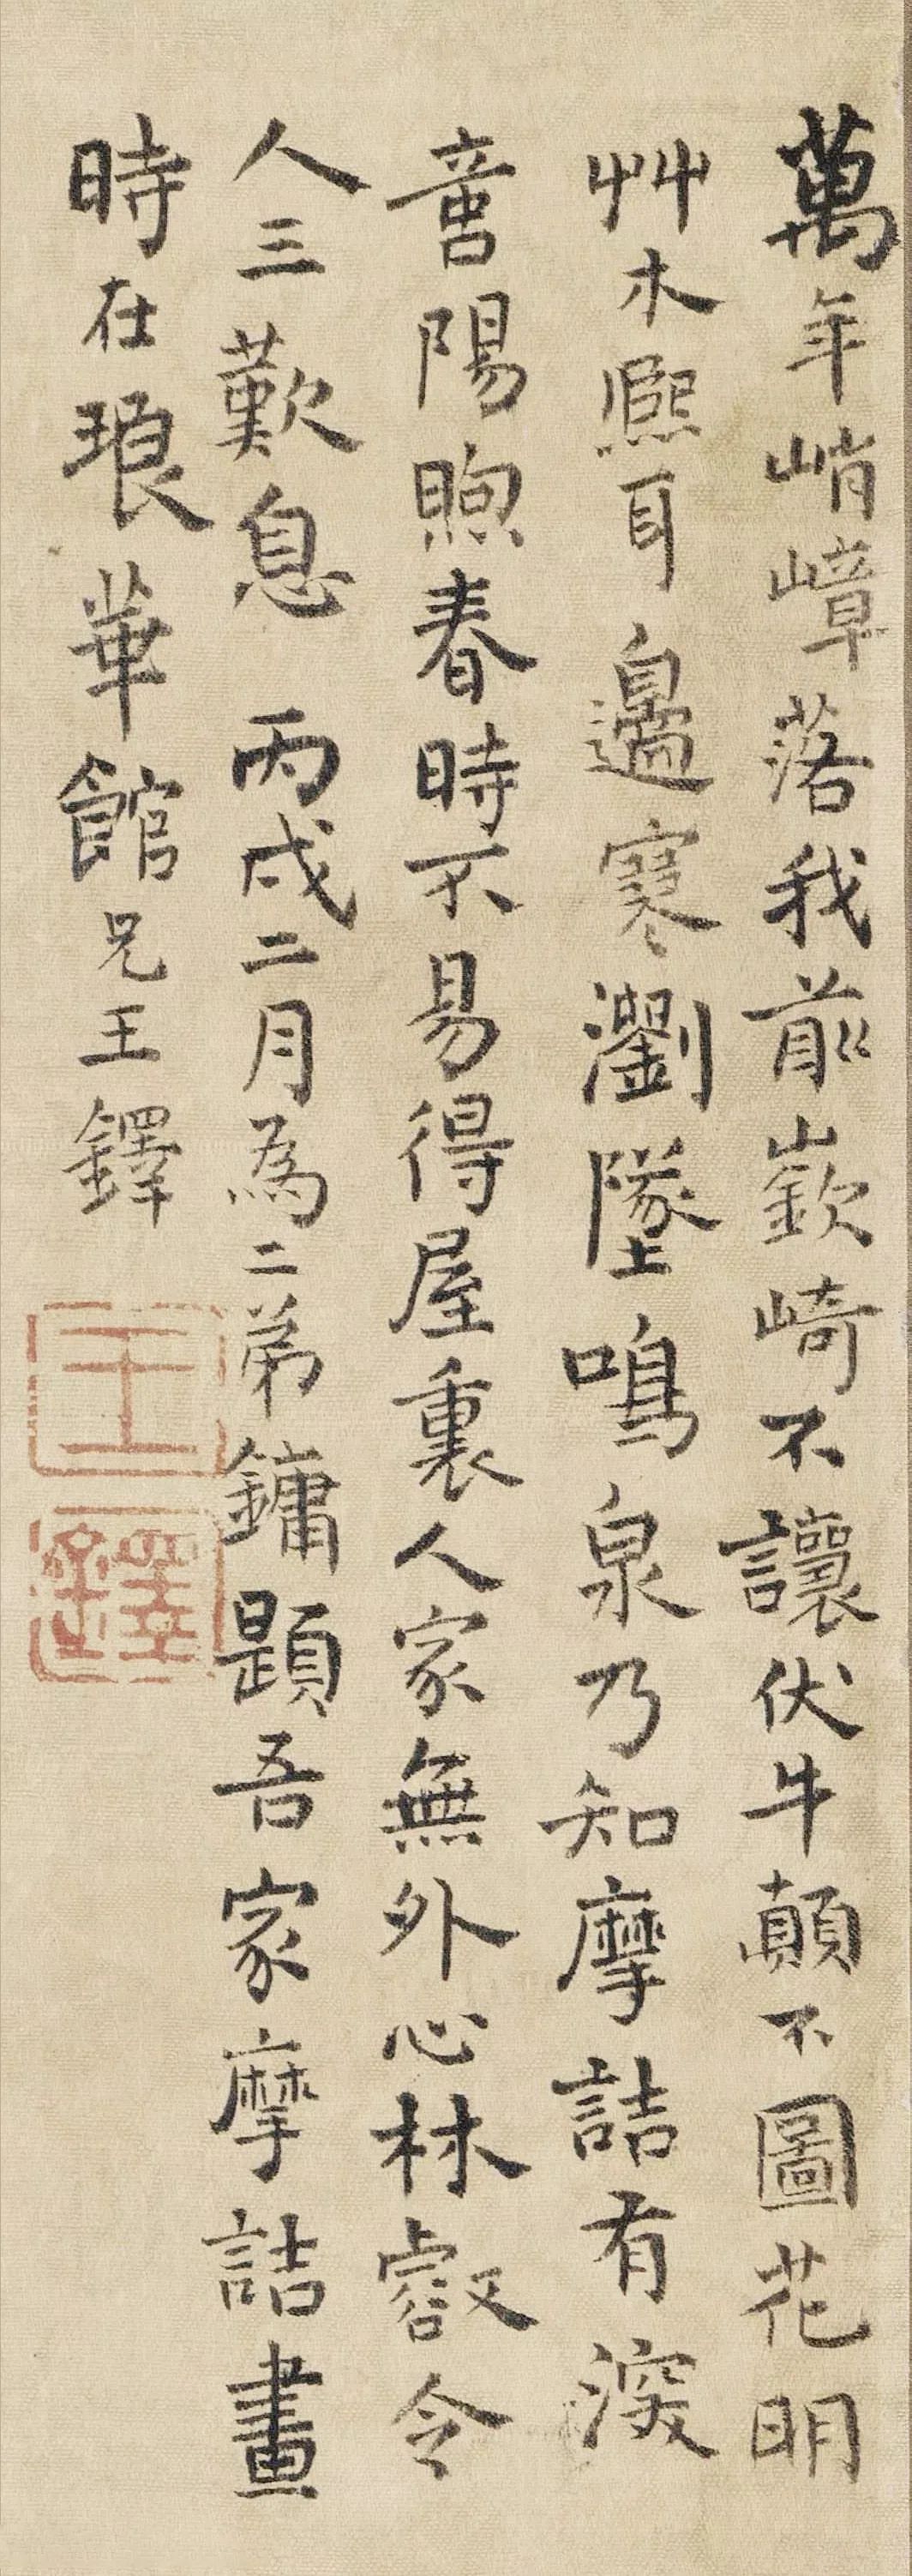 萬年峭嶂落我前嶔崎不讓伏牛顛不圖花明
艸木熙耳邊寒瀏墜鳴泉乃知摩詰有深
意陽煦春時不易得屋裏人家無外心林壑令
人三歎息 丙戌二月為二弟鏞題吾家摩詰畫
時在琅華館兄王鐸
王
鐸